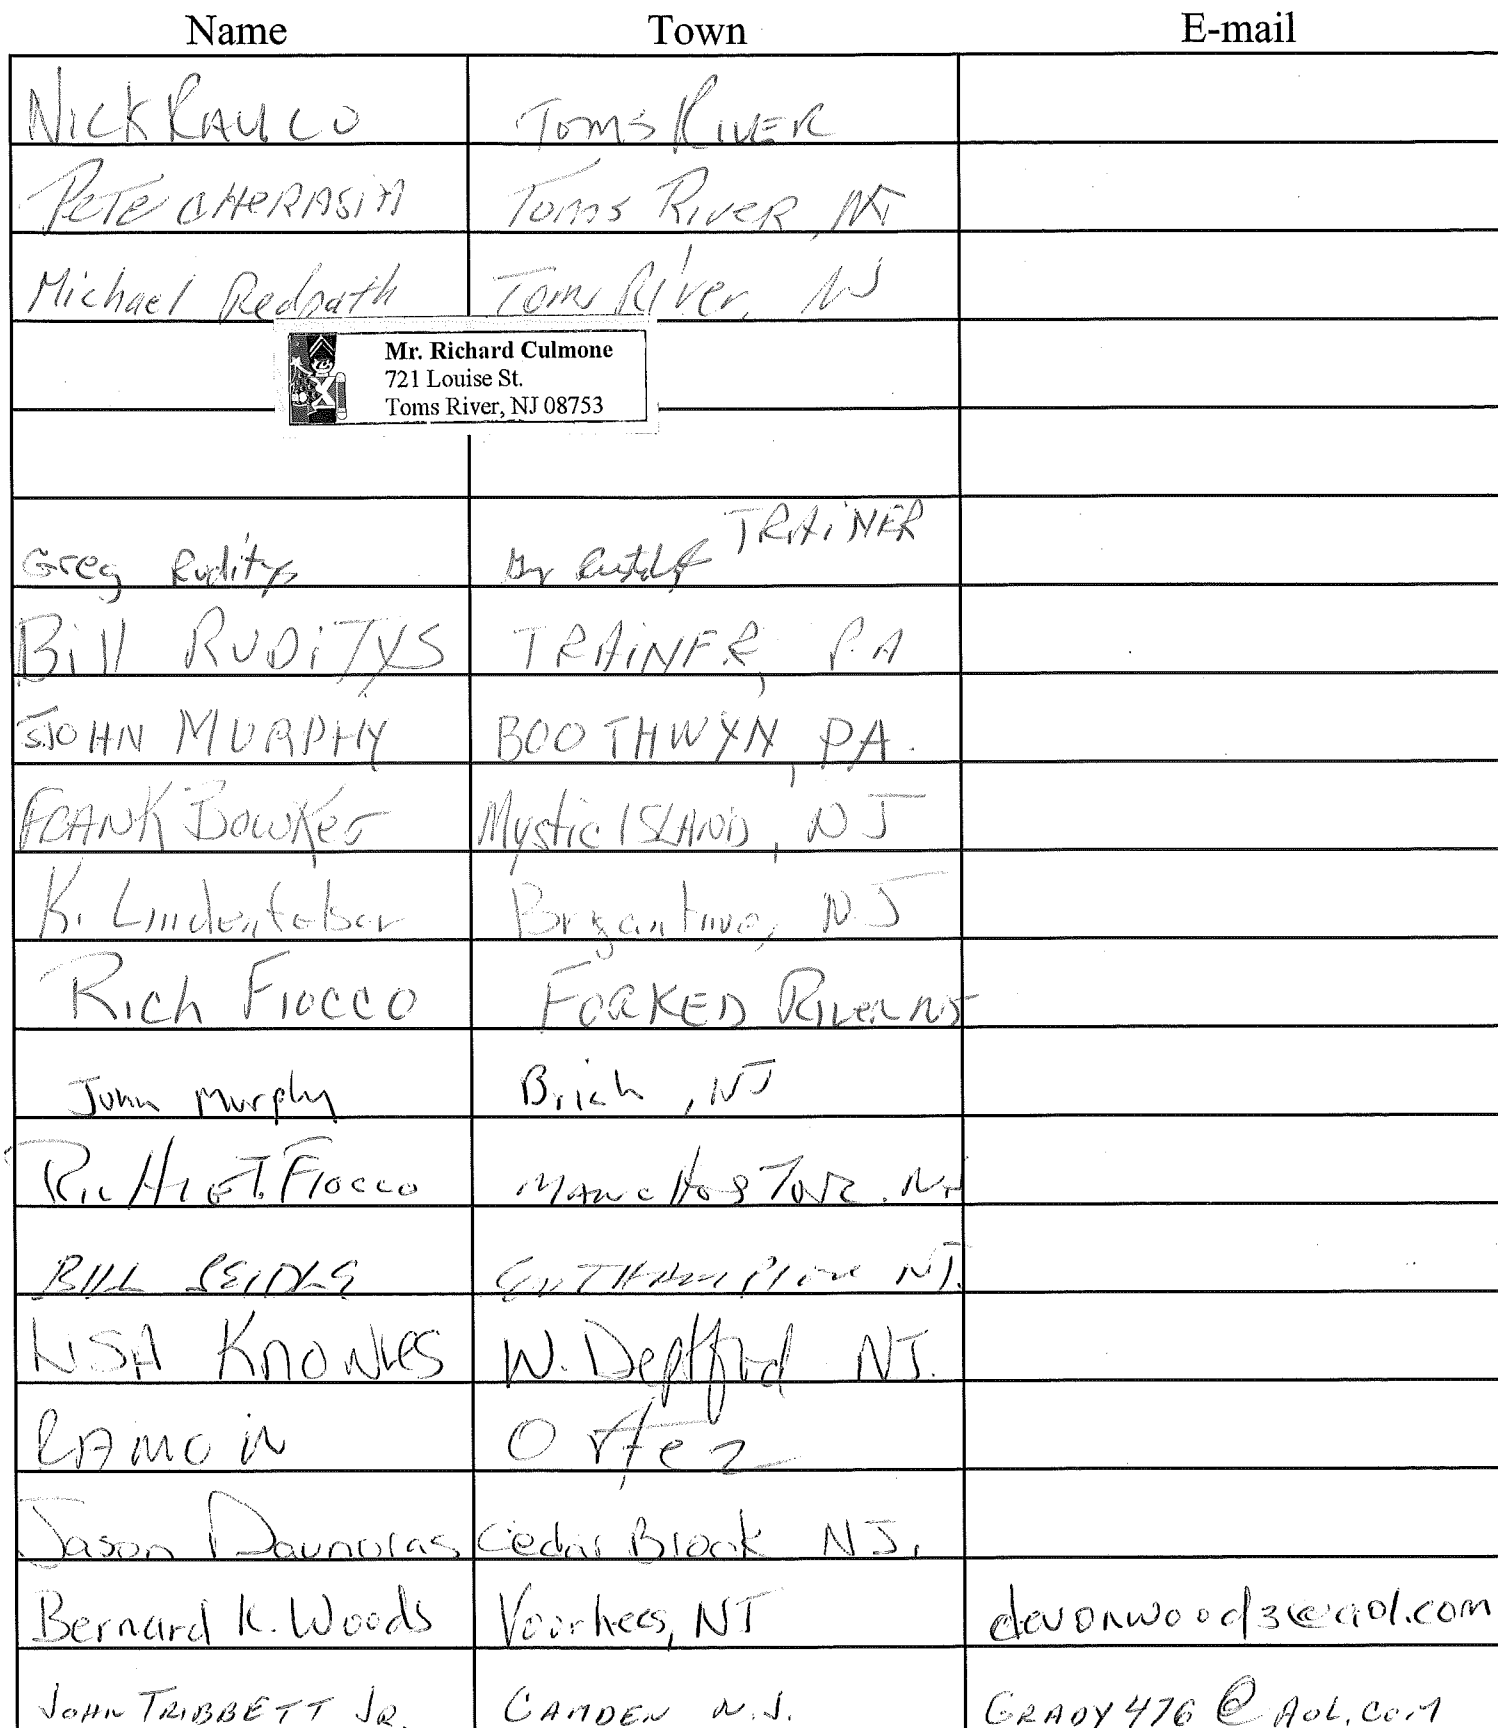 Name Town E-mail
NICK RAUCO TOMS RIVER
PETE CHERASIA Toms River, NJ
Michael Redpath Toms River, NJ
Mr. Richard Culmone
721 Louise St.
Toms River, NJ 08753
Greg Ruditys TRAINER
Bill RUDITYS TRAINER, PA
JOHN MURPHY BOOTHWYN, PA.
FRANK Bowker Mystic ISLAND, NJ
K. Brigantine, NJ
Rich Fiocco FORKED River NJ
John Murphy Brick, NJ
Fiocco NJ
BILL SEIDLE NJ.
LISA KNOWLES W. Deptford NJ.
RAMON Ortez
Jason Daunoras Cedar Brook NJ.
Bernard K. Woods Voorhees, NJ devonwood3@aol.com
JOHN TRIBBETT JR. CAMDEN N.J. GRADY476@AOL.COM